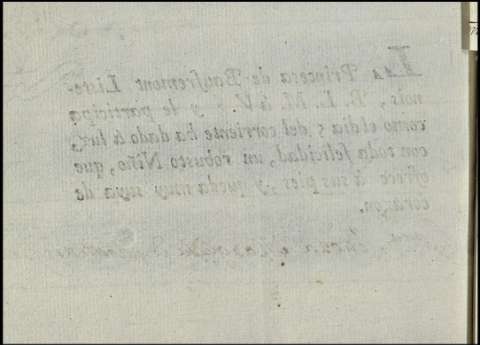 La Princesa de Baufremont Liste-
nois, B. L. M. à V. y le participa
como el dia 5 del corriente ha dado à luz,
con toda felicidad, un robusto Niño, que
ofrece à sus pies, y queda muy suya de
corazon.